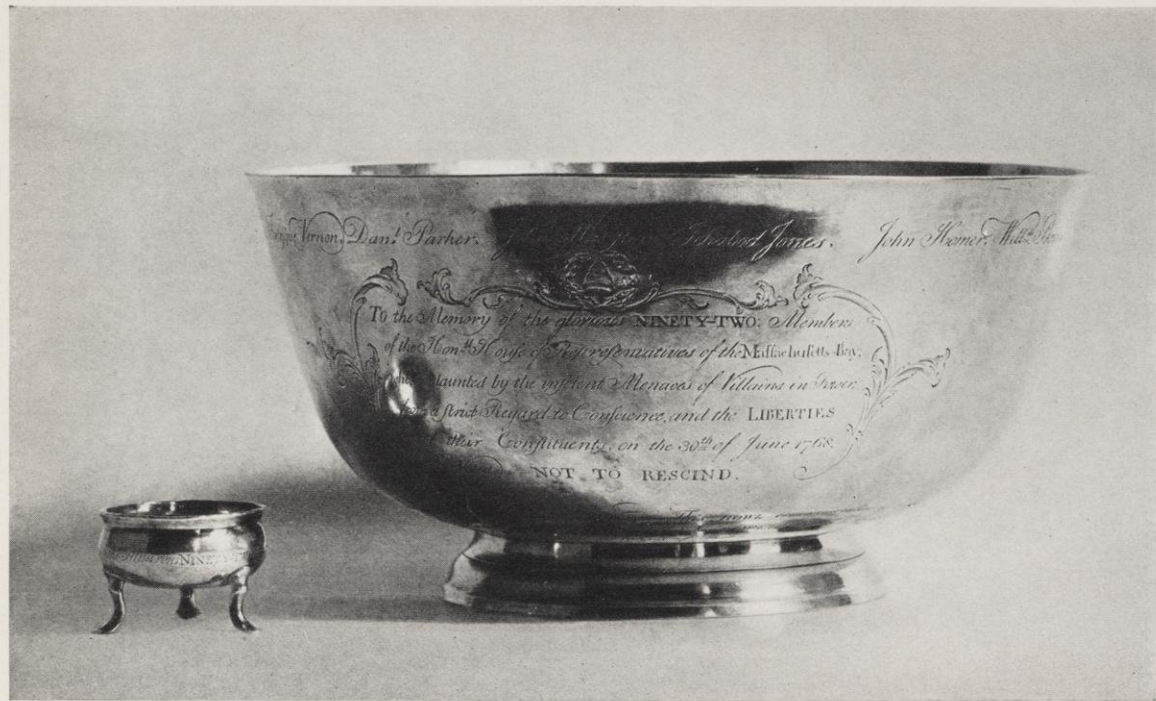 Vernon, Danl. Parker. John Ichabod Jones. John Homer, Willm.
To the Memory of the glorious NINETY-TWO: Members
of the Honbl. House of Representatives of the Maſſachuſetts-Bay,
by the inſolent Menaces of Villains in Power,
a ſtrict Regard to Conſcience, and the LIBERTIES
their Conſtituents, on the 30th of June 1768,
NOT TO RESCIND.
NINE